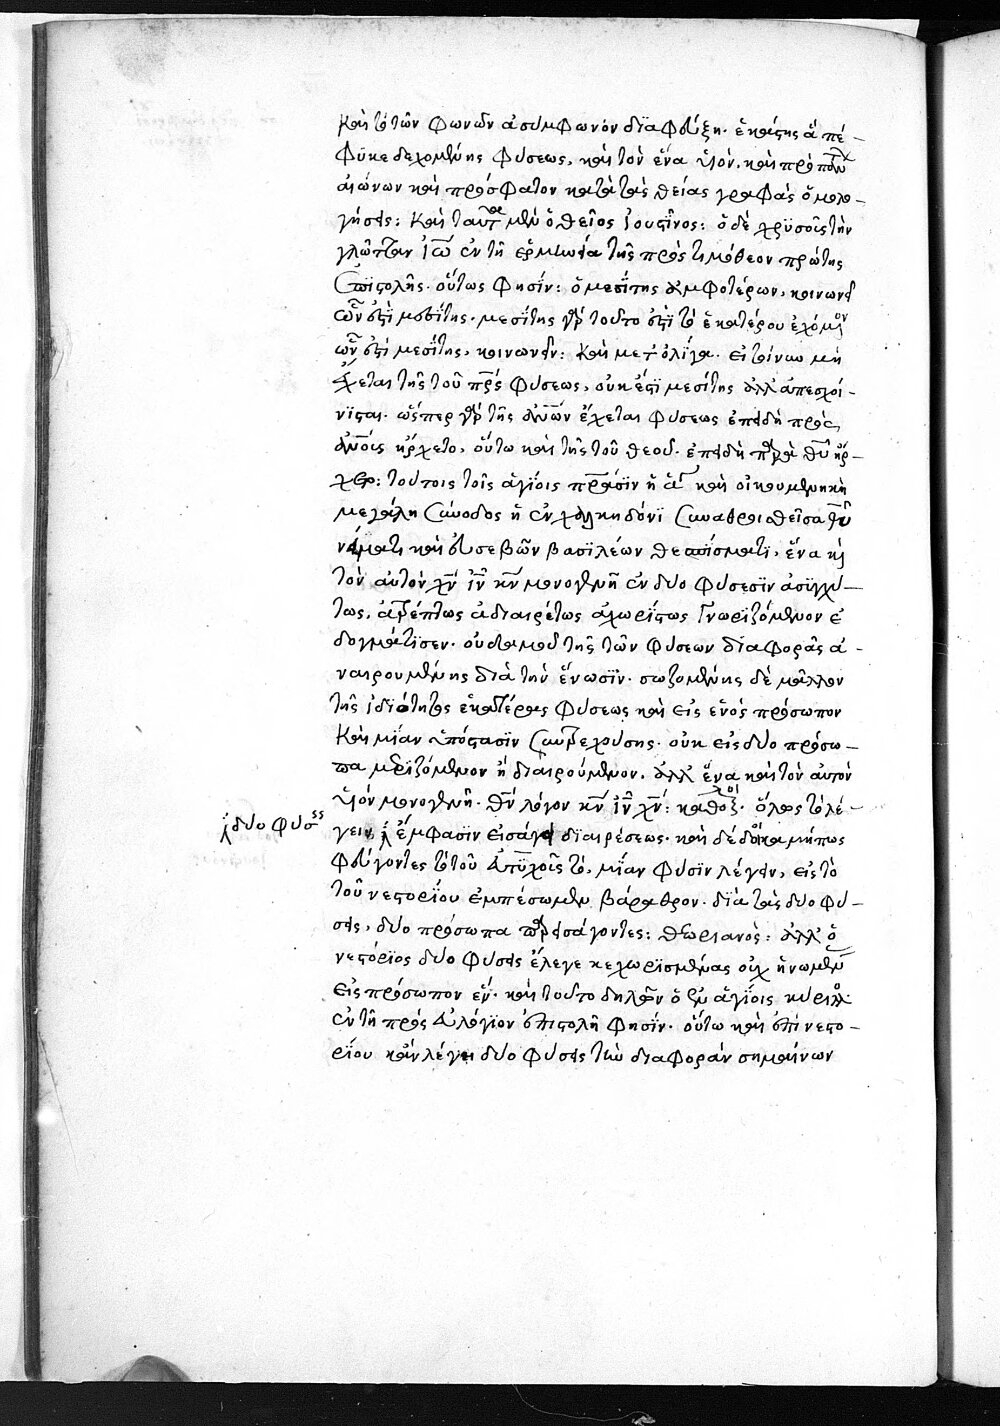 καὶ τὸ τῶν φωνῶν ἀσύμφωνον διαφεύξη. ἑκάστης ἃ πέ-
φυκε δεχομένης φύσεως, καὶ τὸν ἕνα υἱὸν, καὶ πρὸ πάντων
αἰώνων καὶ πρόσφατον κατὰ τὰς θείας γραφὰς ὁμολο-
γήσεις: Καὶ ταῦτα μὲν ὁ θεῖος Ἰουστῖνος: ὁ δὲ χρυσοῦς τὴν
γλῶτταν ἰω ἐν τῇ ἑρμηνεία τῆς πρὸς τιμόθεον πρώτης
ἐπιστολῆς. οὕτως φησίν: ὁ μεσίτης ἀμφοτέρων, κοινωνεῖ
ὧν ἐστι μεσίτης. μεσίτης γὰρ τοῦτο ἐστὶ τὸ ἑκατέρου ἐχόμενον
ὧν ἐστι μεσίτης, κοινωνεῖν: Καὶ μετ' ὀλίγα. εἰ τοίνυν μὴ
ἔχεται τῆς τοῦ πρς φύσεως, οὐκ ἔστι μεσίτης ἀλλ' ἀπεσχοί-
νισται. ὥσπερ γὰρ τῆς ἀνων ἔχεται φύσεως ἐπειδὴ πρὸς
ἀνους ἤρχετο, οὕτω καὶ τῆς τοῦ θεοῦ. ἐπειδὴ παρὰ θυ ἤρ-
χετο: τούτοις τοῖς ἁγίοις πράσιν ἡ δ καὶ οἰκουμενικὴ
μεγάλη σύνοδος ἡ ἐν χαλκηδόνι συναθροισθεῖσα
καὶ εὐσεβῶν βασιλέων θεσπίσματι, ἕνα κὶ
τὸν αὐτὸν χν ιν κν μονογενῆ ἐν δύο φύσεσιν ἀσυγχύ-
τως, ἀτρέπτως ἀδιαιρέτως ἀχωρίστως γνωριζόμενον ἐ
δογμάτισεν. οὐδαμοῦ τῆς τῶν φύσεων διαφορᾶς ἀ-
ναιρουμένης διὰ τὴν ἕνωσιν. σωζομένης δὲ μᾶλλον
τῆς ἰδιότητος ἑκατέρας φύσεως καὶ εἰς ἑνὸς πρόσωπον
καὶ μίαν ὑπόστασιν συντρεχούσης. οὐκ εἰς δύο πρόσω-
πα μεριζόμενον ἢ διαιρούμενον. ἀλλ' ἕνα καὶ τὸν αὐτὸν
υἱὸν μονογενῆ. θν λόγον κν ιν χν: ὅλως τὸ λέ-
γειν, ἔμφασιν εἰσάγει διαιρέσεως. καὶ δέδοικα μήπως
φεύγοντες τὸ τοῦ εὐτυχοῦς τὸ, μίαν φύσιν λέγειν, εἰς τὸ
τοῦ νεστορίου ἐμπέσωμεν βάραθρον. διὰ τὰς δύο φύ-
σεις, δύο πρόσωπα παρεισάγοντες: Θεωριανὸς: ἀλλ' ὁ
νεστόριος δύο φύσεις ἔλεγε κεχωρισμένας οὐχ ἡνωμένας
εἰς πρόσωπον ἕν. καὶ τοῦτο δηλῶν ὁ ἐν ἁγίοις κύριλλος
ἐν τῇ πρὸς εὐλόγιον ἐπιστολῇ φησίν. οὕτω καὶ ἐπὶ νεστο-
ρίου κἂν λέγει δύο φύσεις τὴν διαφορὰν σημαίνων
δύο φύσεις